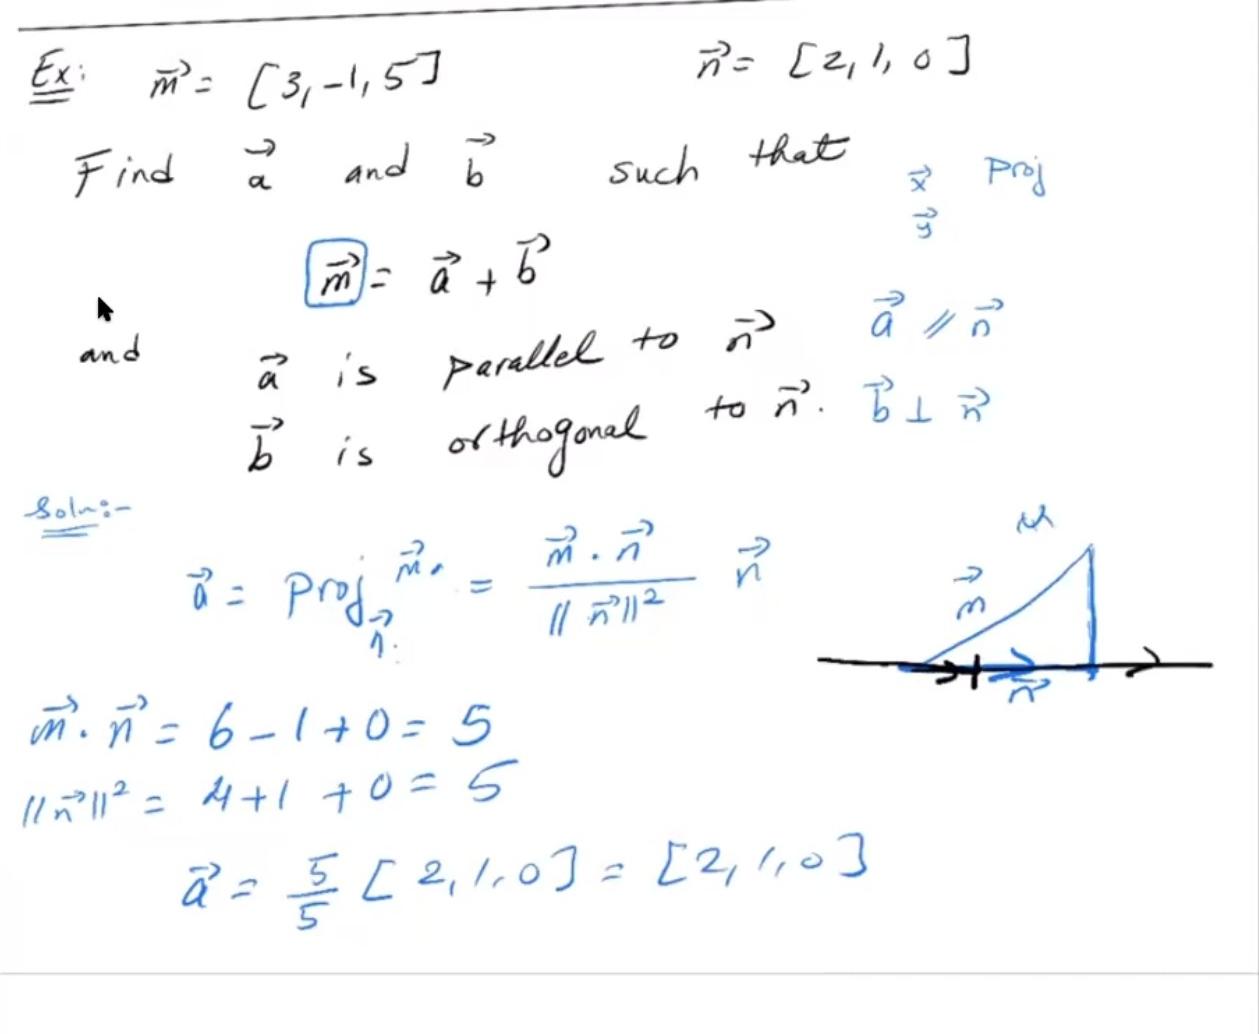 Ex: m⃗ = [3, -1, 5] n⃗ = [2, 1, 0]
Find a⃗ and b⃗ such that
x⃗ Proj
y⃗
m⃗ = a⃗ + b⃗
and a⃗ is parallel to n⃗ a⃗ // n⃗
b⃗ is orthogonal to n⃗. b⃗ ⊥ n⃗
Soln:-
a⃗ = Proj_n⃗ m⃗ = (m⃗ . n⃗) / ||n⃗||² n⃗
m⃗
n⃗
m⃗ . n⃗ = 6 - 1 + 0 = 5
||n⃗||² = 4 + 1 + 0 = 5
a⃗ = 5/5 [2, 1, 0] = [2, 1, 0]